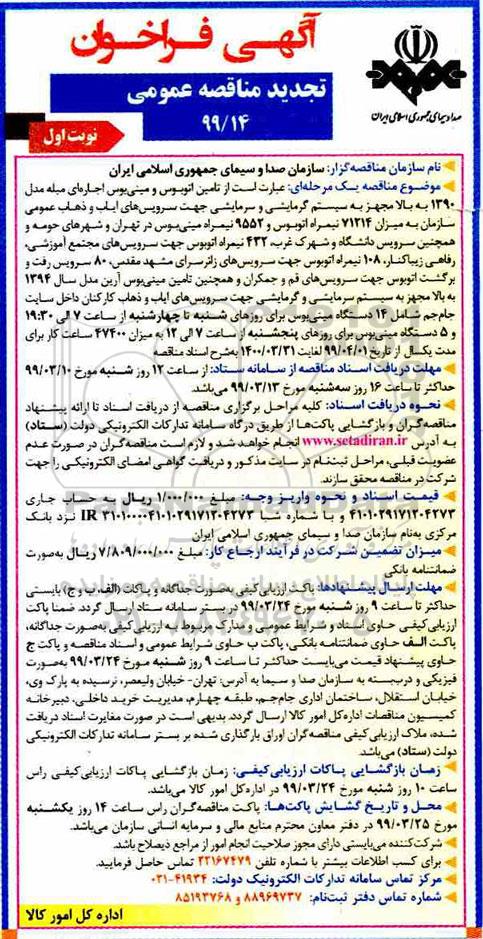 آگهی فراخوان
تجدید مناقصه عمومی
۹۹/۱۴
نوبت اول
صدا و سیمای جمهوری اسلامی ایران
نام سازمان مناقصه‌گزار: سازمان صدا و سیمای جمهوری اسلامی ایران
موضوع مناقصه یک مرحله‌ای: عبارت است از تامین اتوبوس و مینی‌بوس اجاره‌ای مبله مدل
۱۳۹۰ به بالا مجهز به سیستم گرمایشی و سرمایشی جهت سرویس‌های ایاب و ذهاب عمومی
سازمان به میزان ۷۱۳۱۴ نیمراه اتوبوس و ۹۵۵۲ نیمراه مینی‌بوس در تهران و شهرهای حومه و
همچنین سرویس دانشگاه و شهرک غرب، ۴۳۲ نیمراه اتوبوس جهت سرویس‌های مجتمع آموزشی،
رفاهی زیباکنار، ۱۰۸ نیمراه اتوبوس جهت سرویس‌های زائرسرای مشهد مقدس، ۸۰ سرویس رفت و
برگشت اتوبوس جهت سرویس‌های قم و جمکران و همچنین تامین مینی‌بوس آرین مدل سال ۱۳۹۴
به بالا مجهز به سیستم سرمایشی و گرمایشی جهت سرویس‌های ایاب و ذهاب کارکنان داخل سایت
جام‌جم شامل ۱۴ دستگاه مینی‌بوس برای روزهای شنبه تا چهارشنبه از ساعت ۷ الی ۱۹:۳۰
و ۵ دستگاه مینی‌بوس برای روزهای پنجشنبه از ساعت ۷ الی ۱۲ به میزان ۴۷۴۰۰ ساعت کار برای
مدت یکسال از تاریخ ۹۹/۰۴/۰۱ لغایت ۱۴۰۰/۰۳/۳۱ به‌شرح اسناد مناقصه
مهلت دریافت اسناد مناقصه از سامانه ستاد: از ساعت ۱۲ روز شنبه مورخ ۹۹/۰۳/۱۰
حداکثر تا ساعت ۱۶ روز سه‌شنبه مورخ ۹۹/۰۳/۱۳ می‌باشد.
نحوه دریافت اسناد: کلیه مراحل برگزاری مناقصه از دریافت اسناد تا ارائه پیشنهاد
مناقصه‌گران و بازگشایی پاکت‌ها از طریق درگاه سامانه تدارکات الکترونیکی دولت (ستاد)
به آدرس www.setadiran.ir انجام خواهد شد و لازم است مناقصه‌گران در صورت عدم
عضویت قبلی، مراحل ثبت‌نام در سایت مذکور و دریافت گواهی امضای الکترونیکی را جهت
شرکت در مناقصه محقق سازند.
قیمت اسناد و نحوه واریز وجه: مبلغ ۱/۰۰۰/۰۰۰ ریال به حساب جاری
۴۱۰۱۰۲۹۱۷۱۲۰۴۲۷۳ و با شماره شبا IR ۳۱۰۱۰۰۰۰۴۱۰۱۰۲۹۱۷۱۲۰۴۲۷۳ نزد بانک
مرکزی به‌نام سازمان صدا و سیمای جمهوری اسلامی ایران
میزان تضمین شرکت در فرآیند ارجاع کار: مبلغ ۷/۸۰۹/۰۰۰/۰۰۰ ریال به‌صورت
ضمانتنامه بانکی
مهلت ارسال پیشنهادها: پاکت ارزیابی‌کیفی به‌صورت جداگانه و پاکات (الف، ب و ج) بایستی
حداکثر تا ساعت ۹ روز شنبه مورخ ۹۹/۰۳/۲۴ در بستر سامانه ستاد ارسال گردد. ضمنا پاکت
ارزیابی‌کیفی حاوی اسناد و شرایط عمومی و مدارک مربوط به ارزیابی‌کیفی به‌صورت جداگانه،
پاکت الف حاوی ضمانتنامه بانکی، پاکت ب حاوی شرایط عمومی و اسناد مناقصه و پاکت ج
حاوی پیشنهاد قیمت می‌بایست حداکثر تا ساعت ۹ روز شنبه مورخ ۹۹/۰۳/۲۴ به‌صورت
فیزیکی و دربسته به سازمان صدا و سیما به آدرس: تهران- خیابان ولیعصر، نرسیده به پارک وی،
خیابان استقلال، ساختمان اداری جام‌جم، طبقه چهارم، مدیریت خرید داخلی، دبیرخانه
کمیسیون مناقصات اداره‌کل امور کالا ارسال گردد. بدیهی است در صورت مغایرت اسناد دریافت
شده، ملاک ارزیابی‌کیفی مناقصه‌گران اوراق بارگذاری شده بر بستر سامانه تدارکات الکترونیکی
دولت (ستاد) می‌باشد.
زمان بازگشایی پاکات ارزیابی‌کیفی: زمان بازگشایی پاکات ارزیابی‌کیفی راس
ساعت ۱۰ روز شنبه مورخ ۹۹/۰۳/۲۴ در اداره‌کل امور کالا می‌باشد.
محل و تاریخ گشایش پاکت‌ها: پاکت مناقصه‌گران راس ساعت ۱۴ روز یکشنبه
مورخ ۹۹/۰۳/۲۵ در دفتر معاون محترم منابع مالی و سرمایه انسانی سازمان می‌باشد.
شرکت‌کننده می‌بایستی دارای مجوز صلاحیت انجام امور از مراجع ذیصلاح باشد.
برای کسب اطلاعات بیشتر با شماره تلفن ۲۲۱۶۷۴۷۹ تماس حاصل فرمایید.
مرکز تماس سامانه تدارکات الکترونیک دولت: ۴۱۹۳۴-۰۲۱
شماره تماس دفتر ثبت‌نام: ۸۸۹۶۹۷۳۷ و ۸۵۱۹۳۷۶۸
اداره کل امور کالا